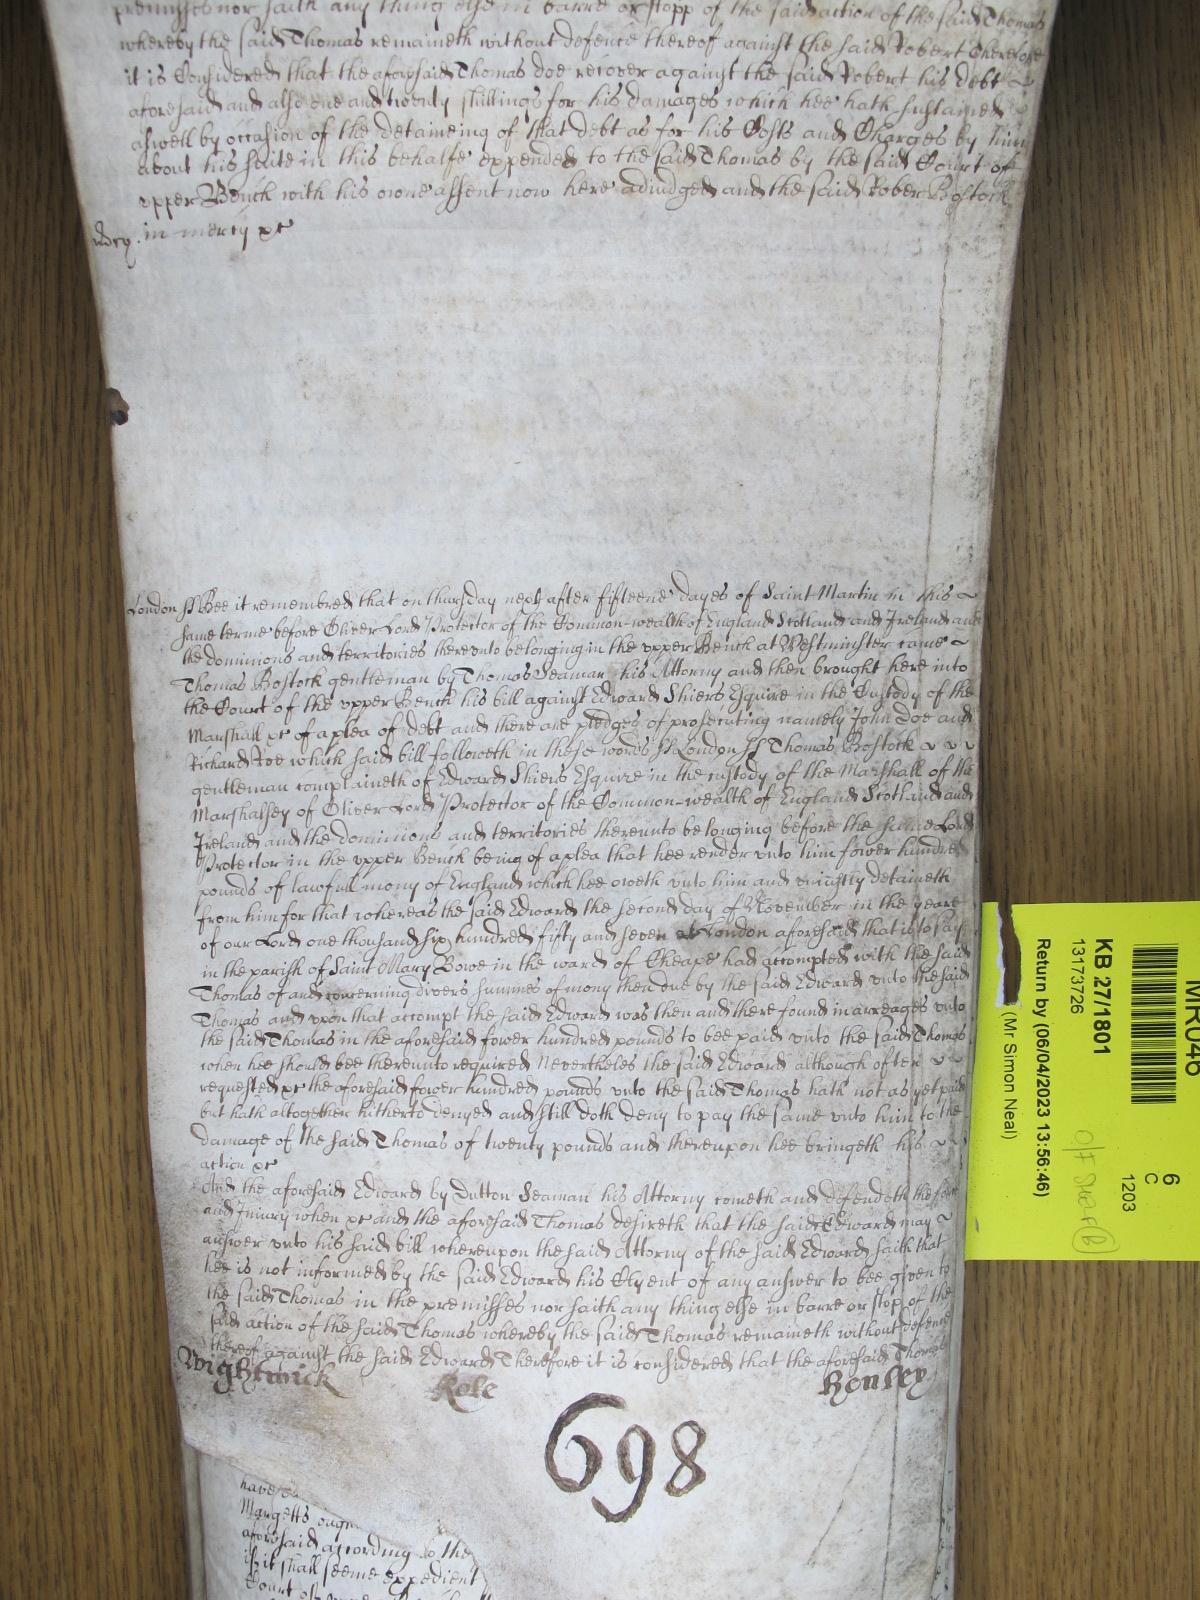 premisses nor saith any thing else in barre or stopp of the said action of the said Thomas
whereby the said Thomas remaineth without defence thereof against the said Robert Therefore
it is Considered that the aforesaid Thomas doe recover against the said Robert his debt
aforesaid and also one and twenty shillings for his damages which hee hath sustained
aswell by occasion of the detaineing of that debt as for his Costs and Charges by him
about his suite in this behalfe expended to the said Thomas by the said Court of
upper Bench with his owne assent now here adiudged and the said Robert Bostock
in mercy &c
London ss Bee it remembred that on thursday next after fifteene dayes of Saint Martin in this
same terme before Oliver Lord Protector of the Common-wealth of England Scotland and Ireland and
the dominions and territories thereunto belonging in the upper Bench at Westminster came
Thomas Bostock gentleman by Thomas Seaman his Attorny and then brought here into
the Court of the upper Bench his bill against Edward Shiers Esquire in the Custody of the
Marshall &c of a plea of debt and there are pledges of prosecuting namely John Doe and
Richard Roe which said bill followeth in these words ss London ss Thomas Bostock
gentleman complaineth of Edward Shiers Esquire in the custody of the Marshall of the
Marshalsey of Oliver Lord Protector of the Common-wealth of England Scotland and
Ireland and the dominions and territories thereunto belonging before the same Lord
Protector in the upper Bench being of a plea that hee render unto him fower hundred
pounds of lawfull mony of England which hee oweth unto him and uniustly detaineth
from him for that whereas the said Edward the second day of November in the yeare
of our Lord one thousand six hundred fifty and seven at London aforesaid that is to say
in the parish of Saint Mary Bowe in the ward of Cheape had accompted with the said
Thomas of and concerning divers summes of mony then due by the said Edward unto the said
Thomas and upon that accompt the said Edward was then and there found in arreages unto
the said Thomas in the aforesaid fower hundred pounds to bee paid unto the said Thomas
when hee should bee thereunto required Nevertheles the said Edward although often
requested &c the aforesaid fower hundred pounds unto the said Thomas hath not as yet paid
but hath altogether hitherto denyed and still doth deny to pay the same unto him to the
damage of the said Thomas of twenty pounds and thereupon hee bringeth his
action &c
And the aforesaid Edward by Dutton Seaman his Attorny cometh and defendeth the force
and Iniury when &c and the aforesaid Thomas desireth that the said Edward may
answer unto his said bill whereupon the said Attorny of the said Edward saith that
hee is not informed by the said Edward his Clyent of any answer to bee given to
the said Thomas in the premisses nor saith any thing else in barre or stop of the
said action of the said Thomas whereby the said Thomas remaineth without defence
thereof against the said Edward Therefore it is considered that the aforesaid Thomas
Wightwick Role Henley
698
have
Margetts
aforesaid according to the
it shall seeme expedient
Court of
MR046
6
C
1203
KB 27/1801
13173726
Return by (06/04/2023 13:56:46)
(Mr Simon Neal)